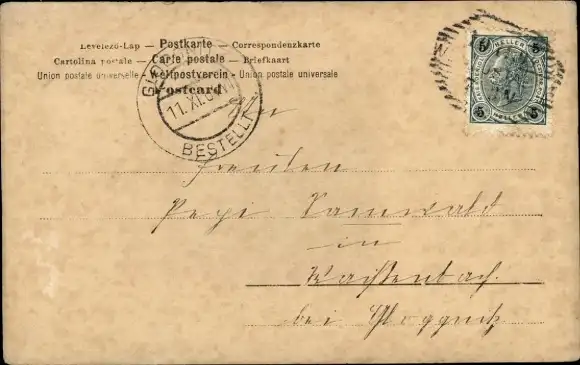 Levelező-Lap — Postkarte — Correspondenzkarte
Cartolina postale — Carte postale — Briefkaart
Union postale universelle — Weltpostverein — Union postale universale
Postcard
11. XI.
BESTELLT
5 HELLER 5
5 5
An
Freulen
Pepi
in
bei Gloggnitz